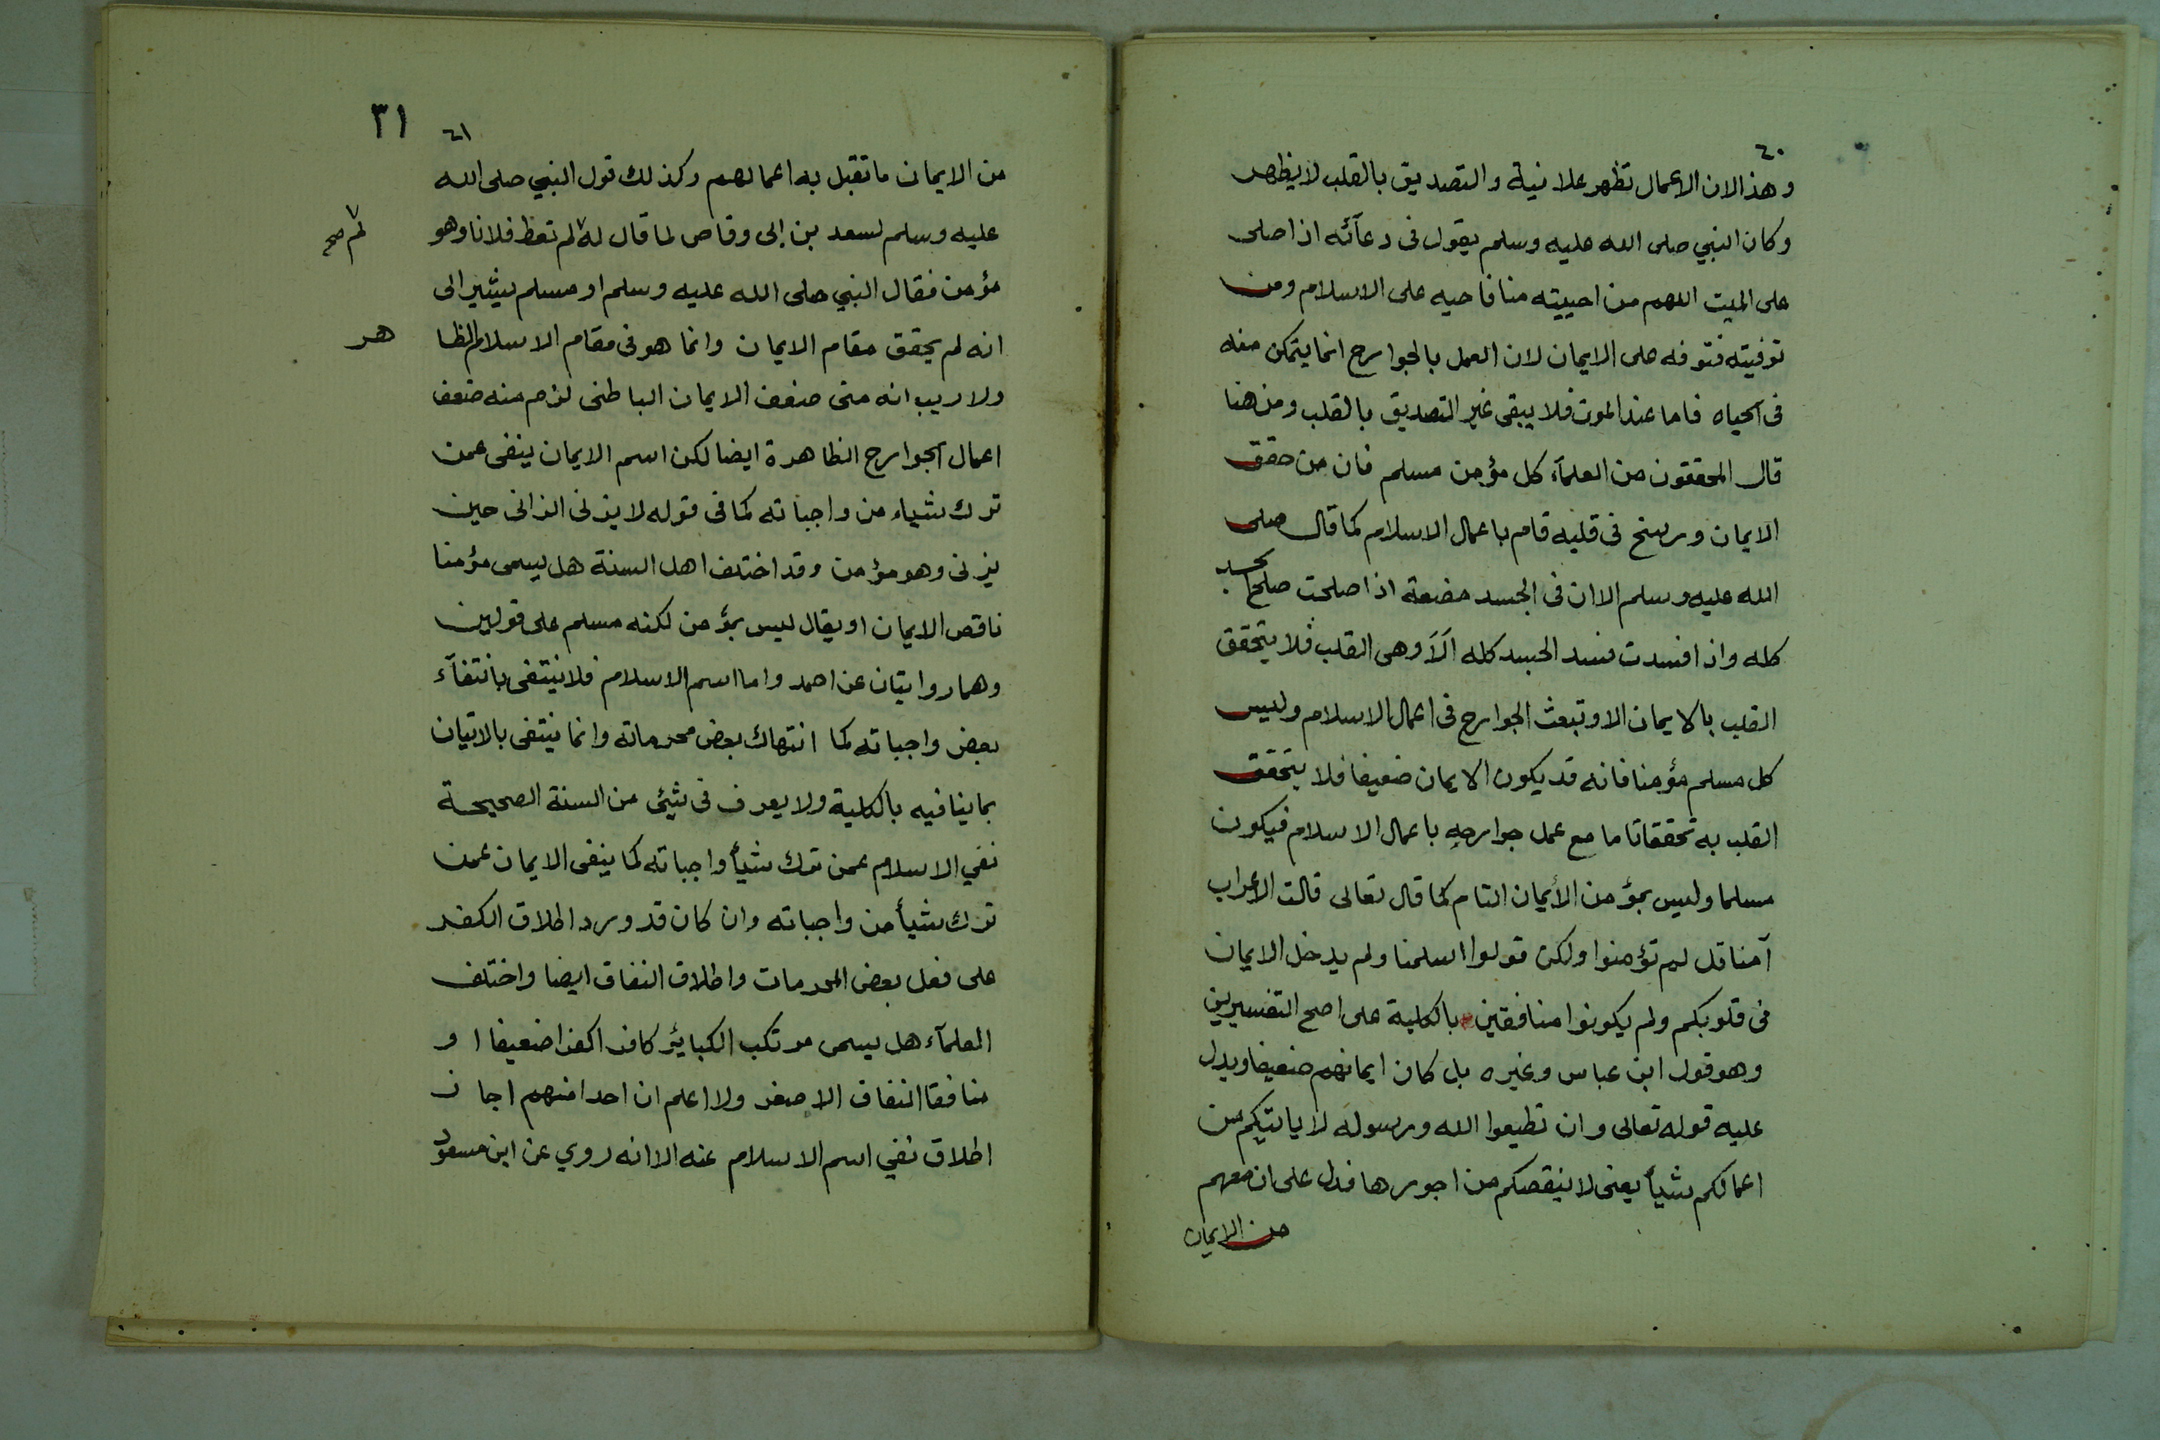 ٦٠
وهذا لان الاعمال تظهر علانية والتصديق بالقلب لا يظهر
وكان النبي صلى الله عليه وسلم يقول فى دعآئه اذا صلى
على الميت اللهم من احييته منا فاحيه على الاسلام ومن
توفيته فتوفه على الايمان لان العمل بالجوارح انما يتمكن منه
فى الحياه فاما عند الموت فلا يبقى غير التصديق بالقلب ومن هنا
قال المحققون من العلمآء كل مؤمن مسلم فان من حقق
الايمان ورسخ فى قلبه قام باعمال الاسلام كما قال صلى
الله عليه وسلم الا ان فى الجسد مضغة اذا صلحت صلح الجسد
كله واذا فسدت فسد الجسد كله اَلَا وهى القلب فلا يتحقق
القلب بالايمان الا وتبعث الجوارح فى اعمال الاسلام وليس
كل مسلم مؤمنا فانه قد يكون الايمان ضعيفا فلا يتحقق
القلب به تحققا تاما مع عمل جوارحه باعمال الاسلام فيكون
مسلما وليس بمؤمن الأيمان التام كما قال تعالى قالت الاعراب
آمنا قل لم تؤمنوا ولكن قولوا اسلمنا ولم يدخل الايمان
فى قلوبكم ولم يكونوا منافقين بالكلية على اصح التفسيرين
وهو قول ابن عباس وغيره بل كان ايمانهم ضعيفا ويدل
عليه قوله تعالى وان تطيعوا الله ورسوله لا ياتيكم من
اعمالكم شيأ يعنى لا ينقصكم من اجورها فدل على ان معهم
من الايمان
٣١
٦١
من الايمان ما تقبل به اعمالهم وكذلك قول النبي صلى الله
عليه وسلم لسعد بن ابى وقاص لما قال له لم تعط فلانا وهو
لم صح
مؤمن فقال النبي صلى الله عليه وسلم او مسلم يشير الى
انه لم يحقق مقام الايمان وانما هو فى مقام الاسلام الظا
هر
ولا ريب انه متى ضعف الايمان الباطنى لزم منه ضعف
اعمال الجوارح الظاهرة ايضا لكن اسم الايمان ينفى عمن
ترك شياء من واجباته كما فى قوله لا يزنى الزانى حين
يزنى وهو مؤمن وقد اختلف اهل السنة هل يسمى مؤمنا
ناقص الايمان او يقال ليس بمؤمن لكنه مسلم على قولين
وهما روايتان عن احمد واما اسم الاسلام فلا ينتفى بانتفآء
بعض واجباته كما انتهاك بعض محرماته وانما ينتفى بالاتيان
بما ينافيه بالكلية ولا يعرف فى شيئ من السنة الصحيحة
نفي الاسلام عمن ترك شيأ واجباته كما ينفى الايمان عمن
ترك شيأ من واجباته وان كان قد ورد اطلاق الكفر
على فعل بعض المحرمات واطلاق النفاق ايضا واختلف
العلمآء هل يسمى مرتكب الكبايئر كافرا كفرا ضعيفا او
منافقا النفاق الاصغر ولا اعلم ان احدا منهم اجاز
اطلاق نفي اسم الاسلام عنه الا انه روي عن ابن مسعود